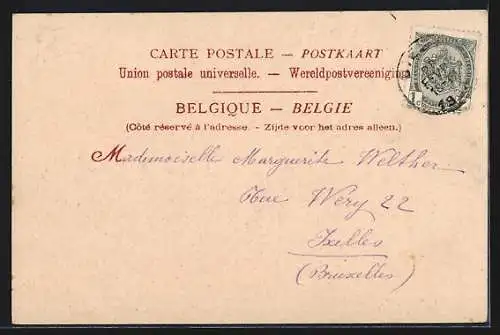 CARTE POSTALE — POSTKAART
Union postale universelle. — Wereldpostvereeniging
BELGIQUE — BELGIE
(Côté réservé à l'adresse. - Zijde voor het adres alleen.)
Mademoiselle Marguerite Welther
Rue Wéry 22
Ixelles
(Bruxelles)
1